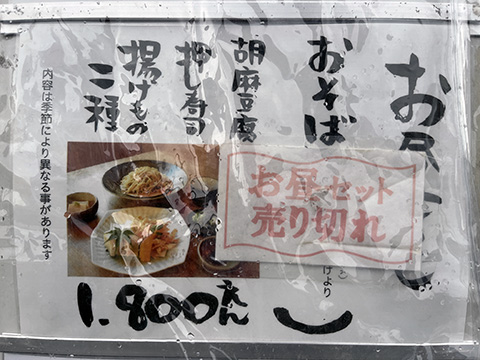 お昼
おそば
胡麻豆腐
押し寿司
揚げもの
二種
内容は季節により異なる事があります
お昼セット
売り切れ
げより
1.800えん